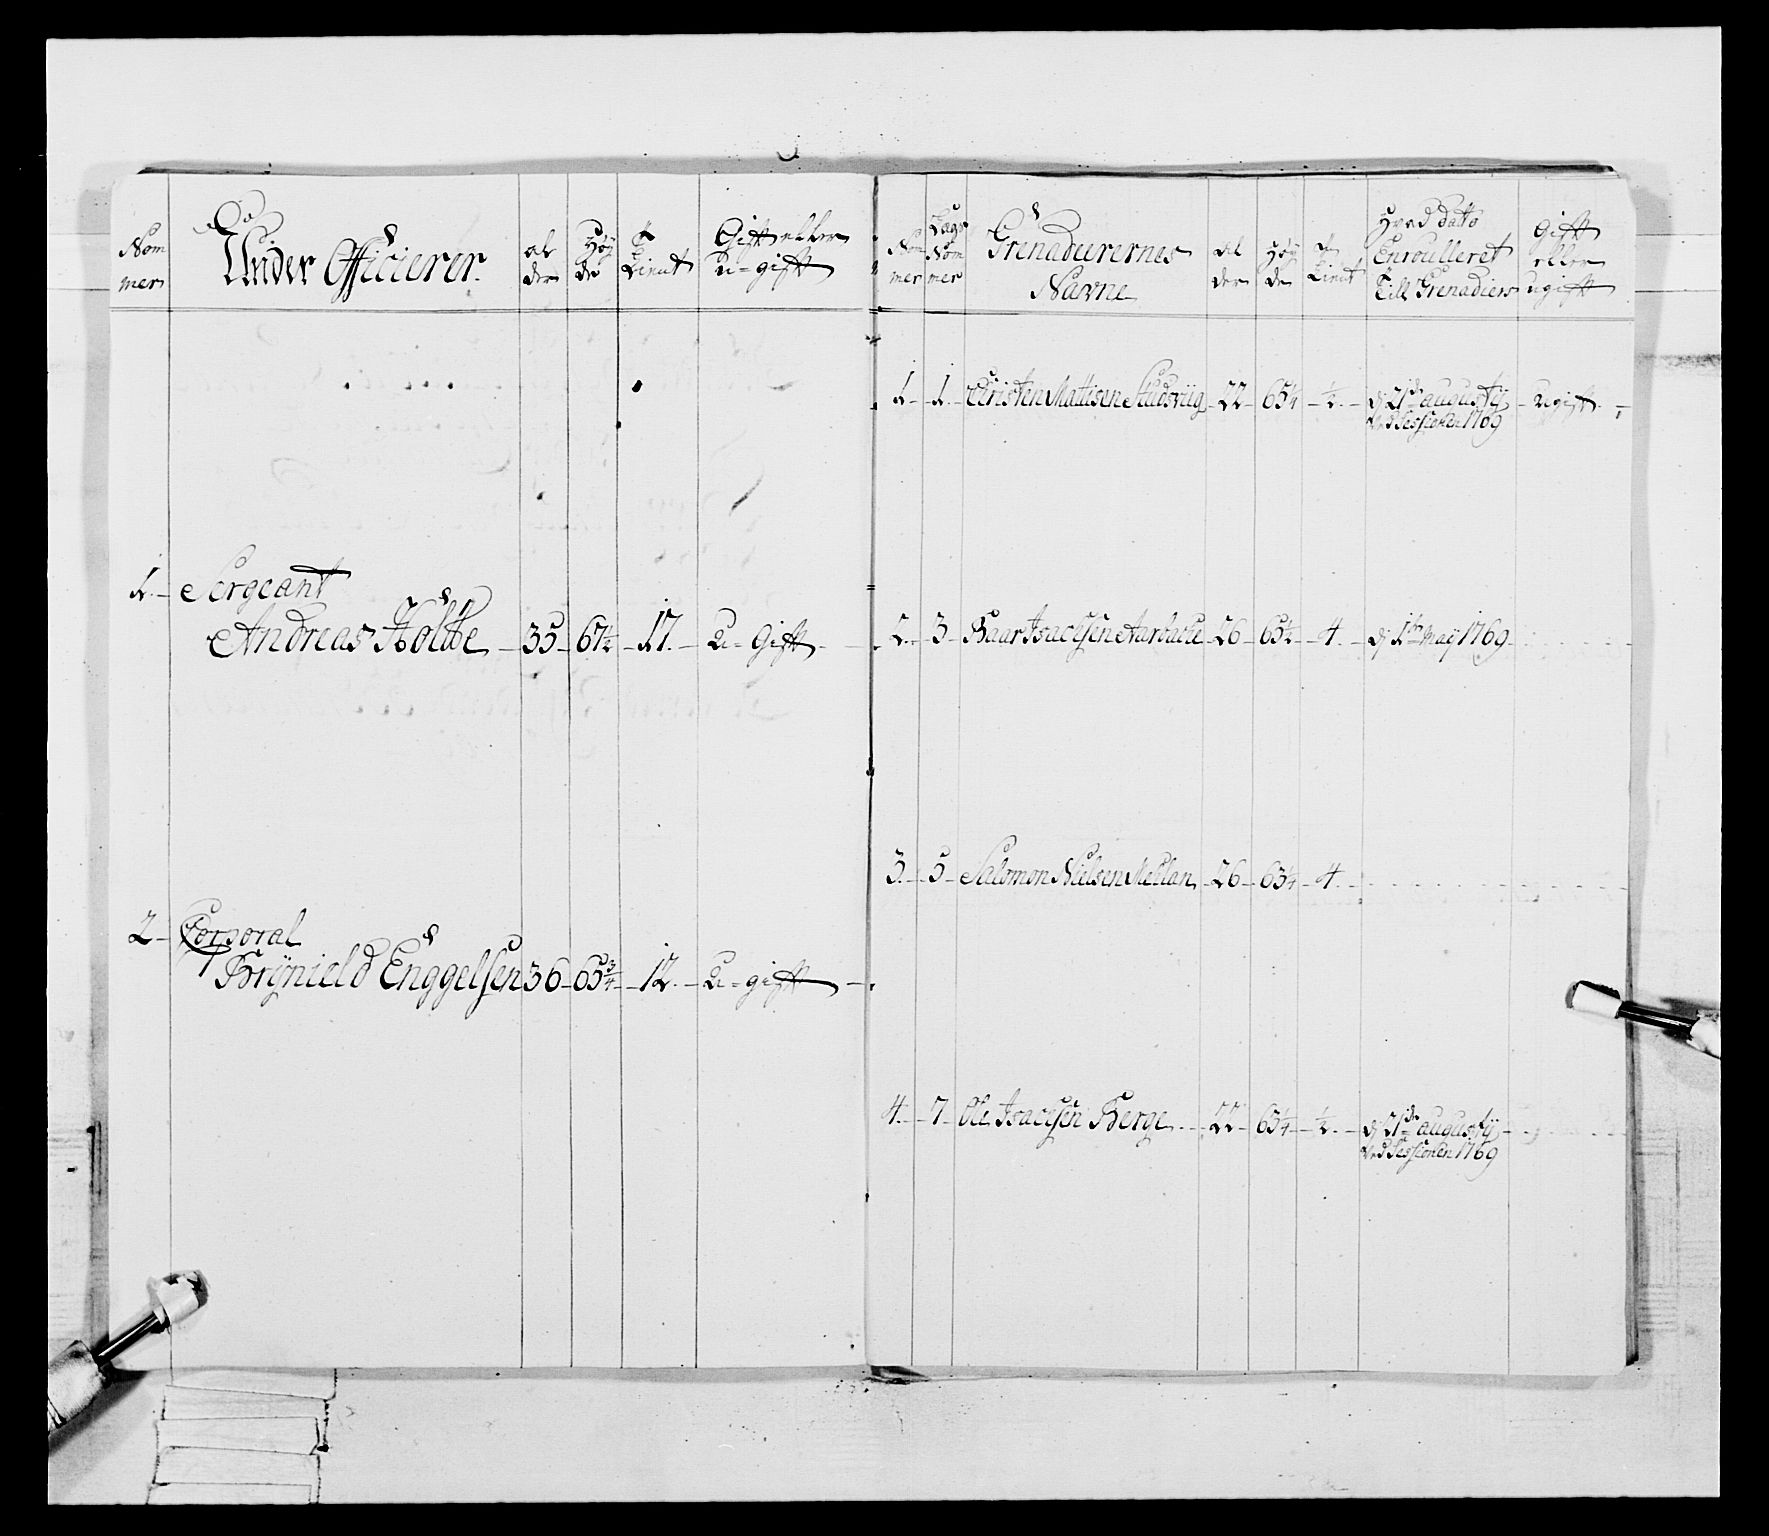 Nom
mer
Under Officierer.
al
der
Høy
de
Tient
Gift eller
u=gift
1. Sergeant
Andreas Holtte 35 67 1/2 17. U= Gift
2 Corporal
Brÿnield Enggelsen 36 65 3/4 12. U= gift
Nom
mer
Lags
Nom
mer
Grenadeerernes
Navne
al
der
Høy
de
Tient
Hvad datto
Enroulleret
till Grenadiers
Gift
eller
ugift
1. 1. Christen Mattisen Studsviig 22 65 1/4 1/2 d 21de augustÿ ugift
Ved Sessionen 1769
2. 3 Baar Isachsen Aarbache 26 65 1/2 4. d 1te Maÿ 1769
3. 5 Salomon Nielsen Mehlan 26 63 1/4 4.
4. 7 Ole Isachsen Berge 22 63 1/4 1/2 d 21de augustÿ
Ved Sessionen 1769